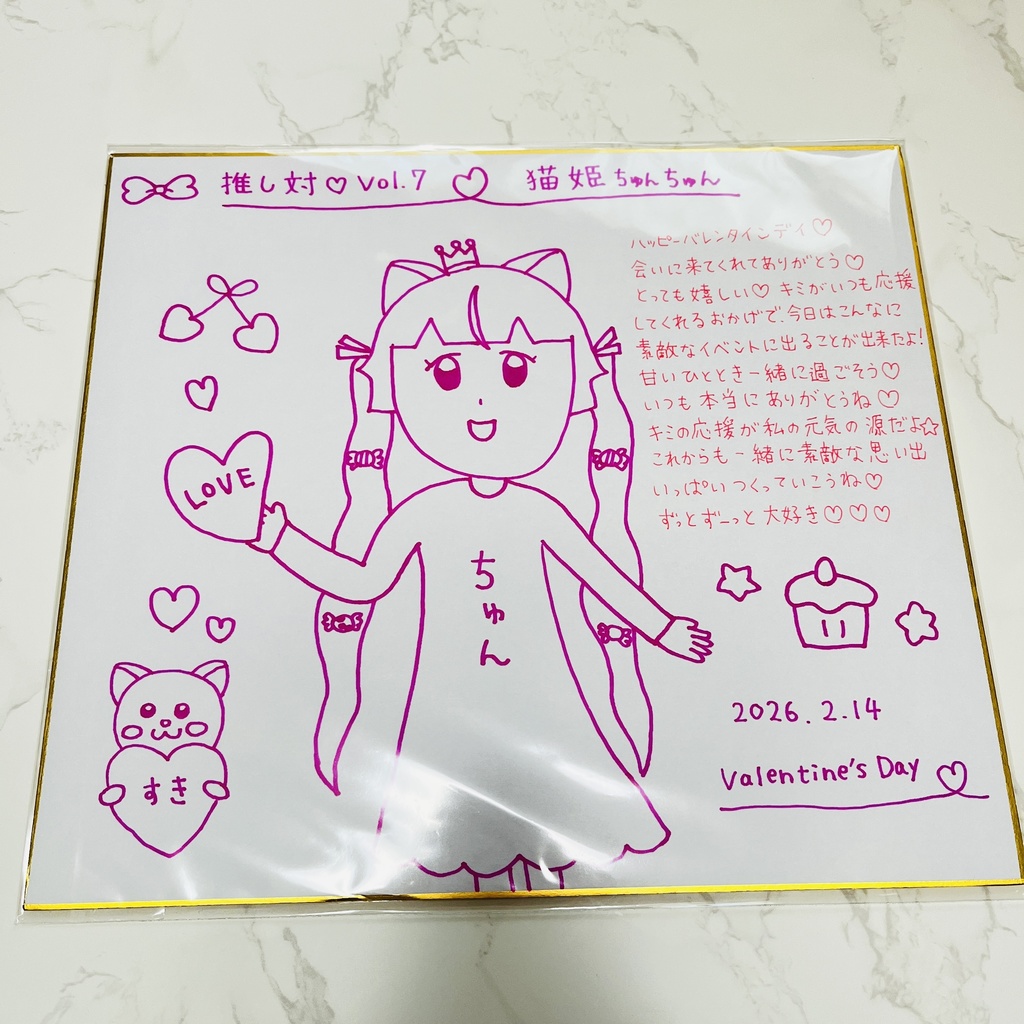 推し対♡Vol.7 ♡ 猫姫ちゅんちゅん
ハッピーバレンタインデイ♡
会いに来てくれてありがとう♡
とっても嬉しい♡ キミがいつも応援
してくれるおかげで、今日はこんなに
素敵なイベントに出ることが出来たよ!
甘いひととき一緒に過ごそう♡
いつも本当にありがとうね♡
キミの応援が私の元気の源だよ☆
これからも一緒に素敵な思い出
いっぱいつくっていこうね♡
ずっとずーっと大好き♡♡♡
LOVE
ちゅん
すき
2026.2.14
Valentine's Day♡